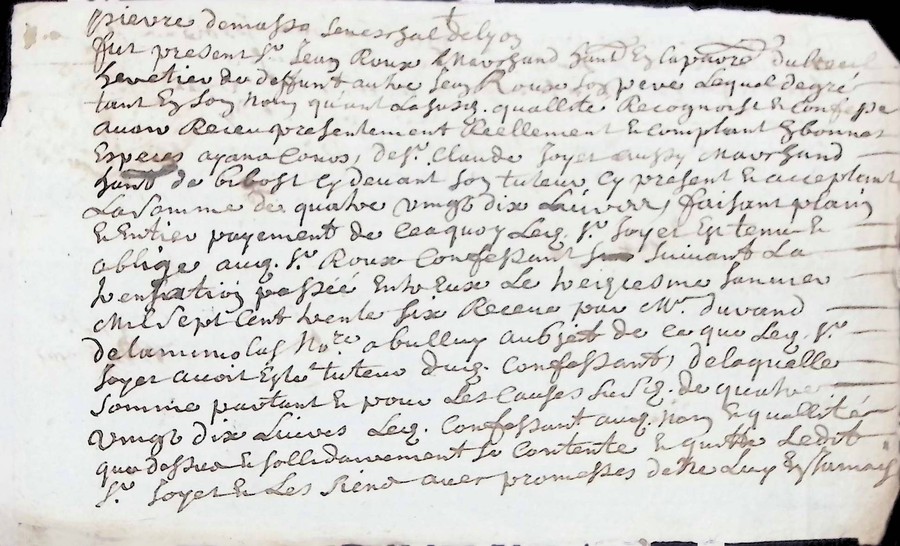 pierre demasso seneschal de lyon
fut present Sr. Jean Roux Marchand hant. En la parre. du
heretier de deffunt autre Jean Roux son pere Lequel de gré
tant En Son Nom quant La susd. quallité Recognoist E Confesse
avoir Receu presentement Reellement E Comptant En bonnes
Especes ayans Cours, de Sr. Claude Joyet aussy Marchand
hant de bibost Cy devant Son tuteur, Cy present E acceptant
La Somme de quatre vingt dix Livres, faisant plain
E Entier payement de Ce a quoy Led. Sr. Joyet Est tenu E
oblige aud. Sr. Roux Confessant Suivant La
passée Entreux Le Janvier
Mil Sept Cent trente Six Receue par Me. durand
Nore. a bully au Sujet de Ce que Led. Sr.
Joyet avoit Esté tuteur dud. Confessant, de laquelle
Somme partant E pour Les Causes Susd. de quatre
vingt dix Livres Led. Confessant aud. Nom E quallité
que dessus E sollidairement Se Contente E quitte Ledit
Sr. Joyet E Les Siens avec promesses de Ne Luy En Jamais